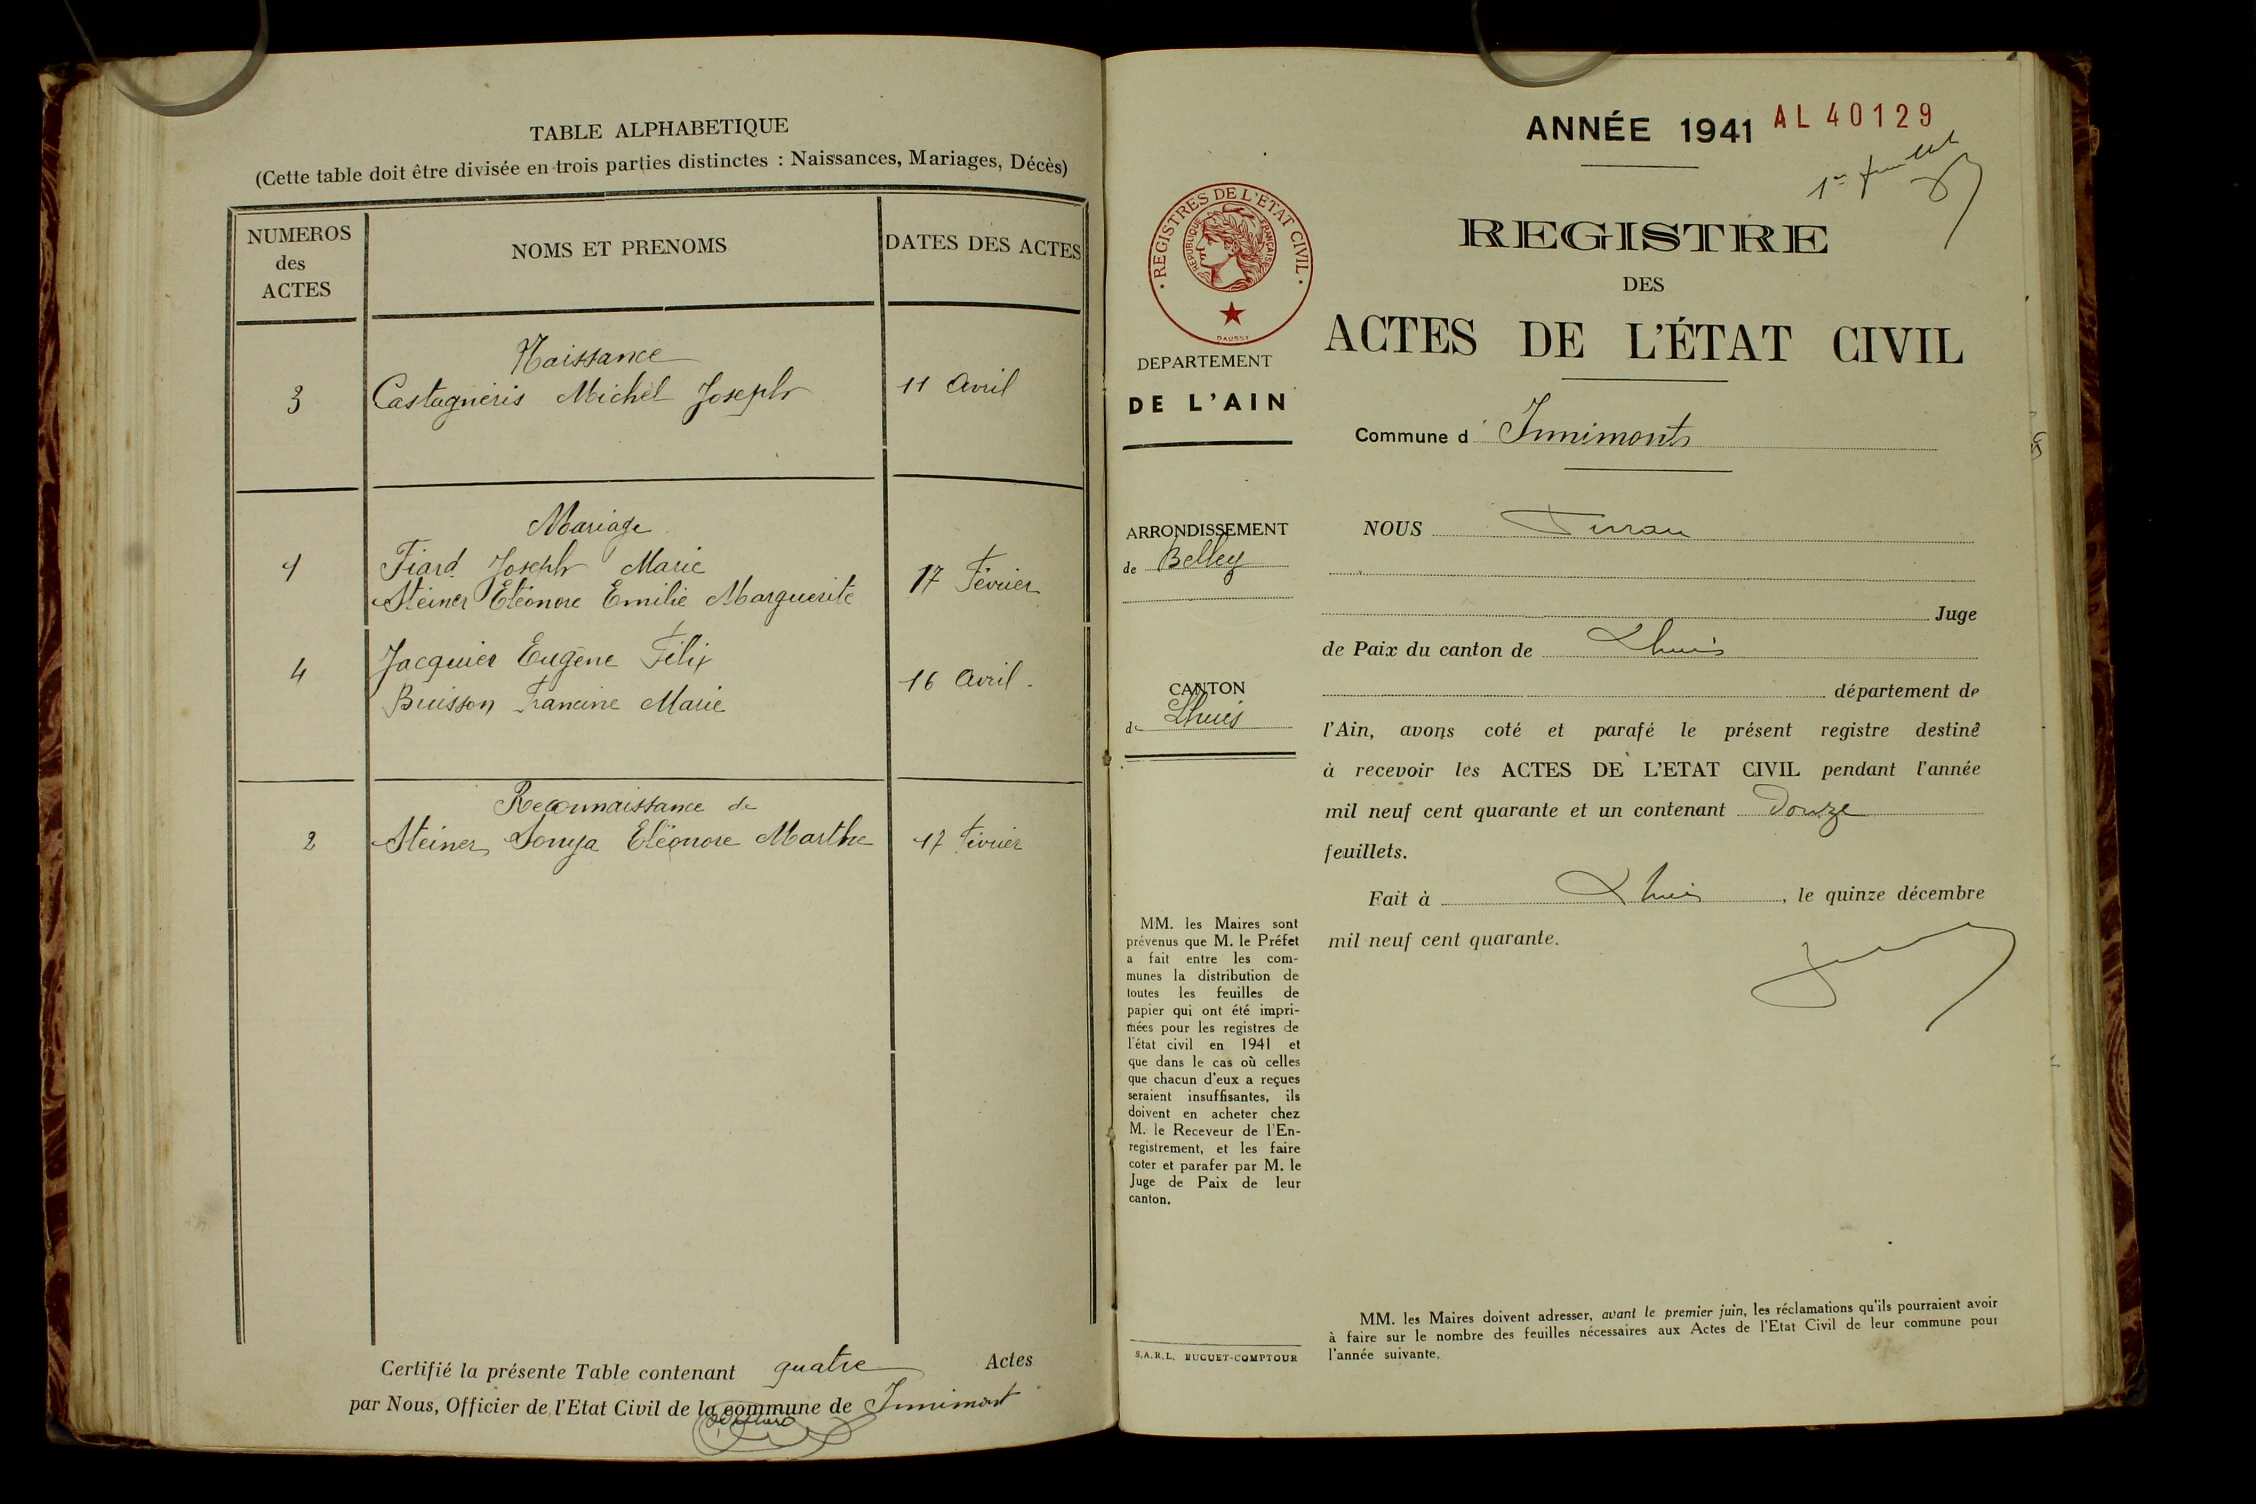 TABLE ALPHABETIQUE
(Cette table doit être divisée en trois parties distinctes : Naissances, Mariages, Décès)
NUMEROS
des
ACTES
NOMS ET PRENOMS
DATES DES ACTES
Naissance
3 Castagnéris Michel Joseph 11 Avril
Mariage
1 Fiard Joseph Marie
Steiner Eléonore Emilie Marguerite 17 Février
4 Jacquier Eugène Félix
Buisson Francine Marie 16 Avril.
Reconnaissance de
2 Steiner Sonya Eléonore Marthe 17 Février
Certifié la présente Table contenant quatre Actes
par Nous, Officier de l'Etat Civil de la commune de Innimont
ANNÉE 1941 AL 40129
1er feuillet
REGISTRES DE L'ETAT CIVIL
REPUBLIQUE FRANÇAISE
DAUSSY
REGISTRE
DES
ACTES DE L'ÉTAT CIVIL
DEPARTEMENT
DE L'AIN
Commune d' Innimont
ARRONDISSEMENT
de Belley
CANTON
de Lhuis
MM. les Maires sont
prévenus que M. le Préfet
a fait entre les com-
munes la distribution de
toutes les feuilles de
papier qui ont été impri-
mées pour les registres de
l'état civil en 1941 et
que dans le cas où celles
que chacun d'eux a reçues
seraient insuffisantes, ils
doivent en acheter chez
M. le Receveur de l'En-
registrement, et les faire
coter et parafer par M. le
Juge de Paix de leur
canton.
S.A.R.L. BUGUET-COMPTOUR
NOUS
Juge
de Paix du canton de Lhuis
département de
l'Ain, avons coté et parafé le présent registre destiné
à recevoir les ACTES DE L'ETAT CIVIL pendant l'année
mil neuf cent quarante et un contenant Douze
feuillets.
Fait à Lhuis, le quinze décembre
mil neuf cent quarante.
MM. les Maires doivent adresser, avant le premier juin, les réclamations qu'ils pourraient avoir
à faire sur le nombre des feuilles nécessaires aux Actes de l'Etat Civil de leur commune pour
l'année suivante.